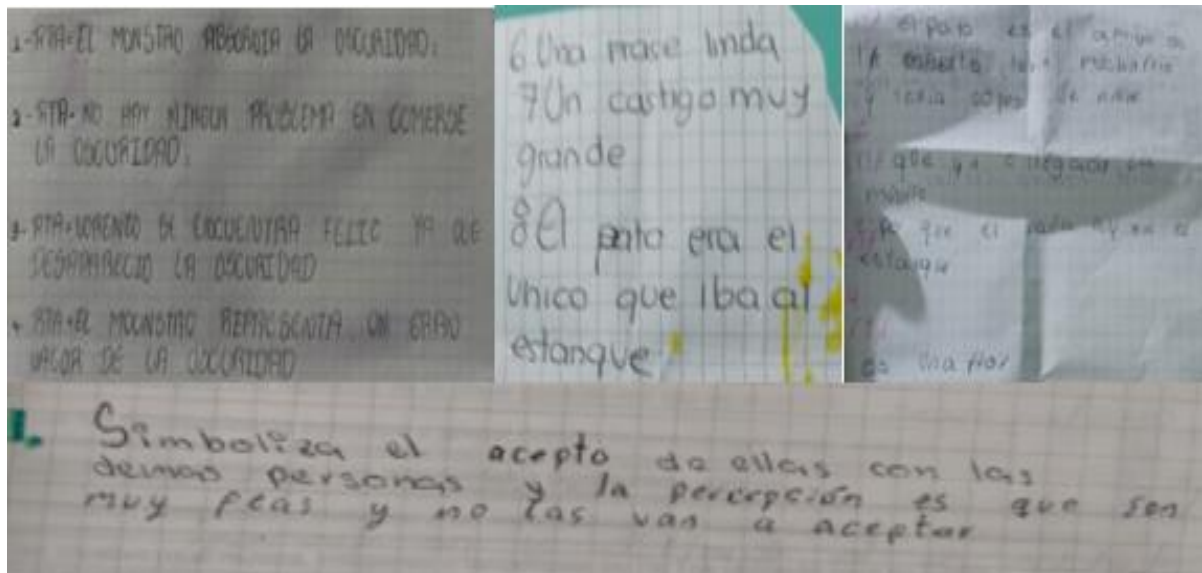 1-RTA-EL MONSTRO ABSORVIA LA OSCURIDAD.
2-RTA-NO HAY NINGUN PROBLEMA EN COMERSE
LA OSCURIDAD.
3-RTA-LORENZO SE ENCUENTRA FELIZ YA QUE
DESAPARECIO LA OSCURIDAD
4-RTA-EL MOUNSTRO REPRESENTA UN GRAN
VALOR DE LA OSCURIDAD
6 Una frase linda
7 Un castigo muy
grande
8 El pato era el
Unico que iba al
estanque
el pato es el
y
que ya
que el
estanque
es una flor
1. Simboliza el acepto de ellas con las
demas personas y la percepción es que son
muy feas y no las van a aceptar